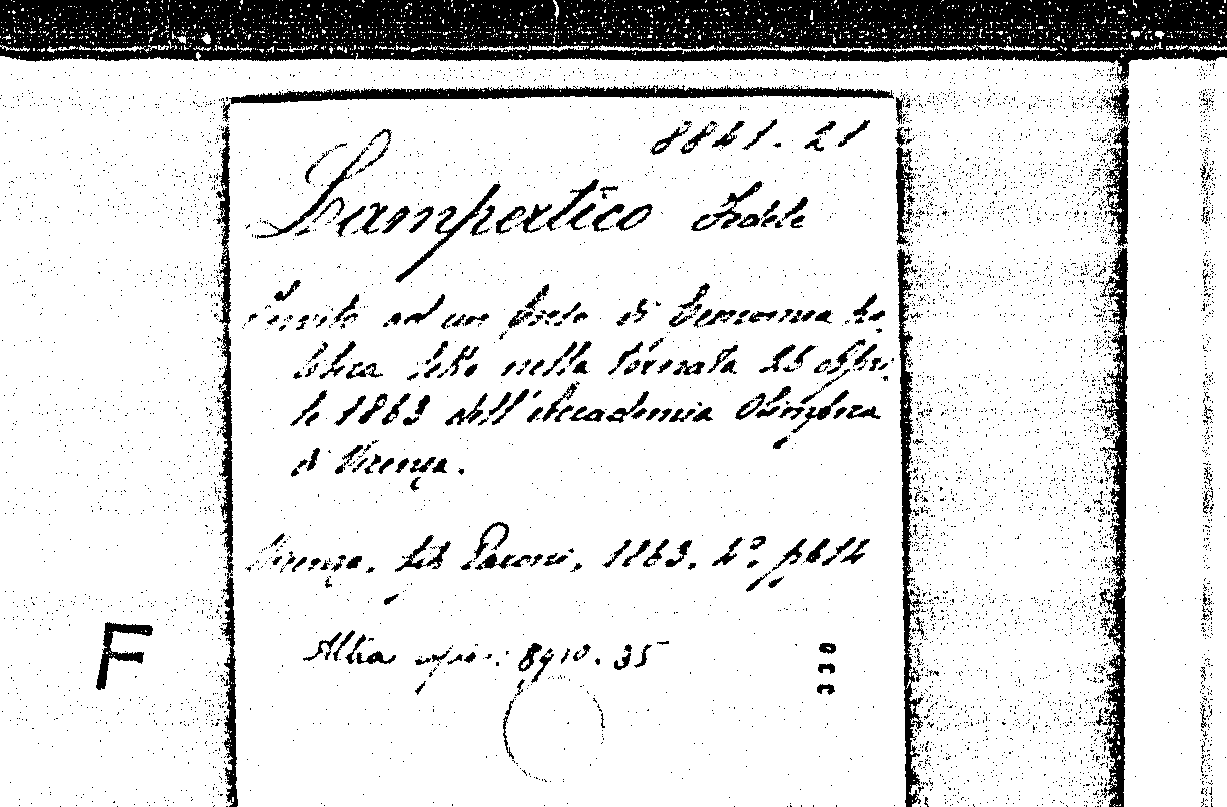 8841.21
Lampertico Fedele
Invito ad un corso di Economia Po-
litica letto nella tornata 25 Apri-
le 1863 dell'Accademia Olimpica
di Vicenza.
Vicenza. tip. Paroni, 1863. 4°.
Altra copia: 8910.35
F
330